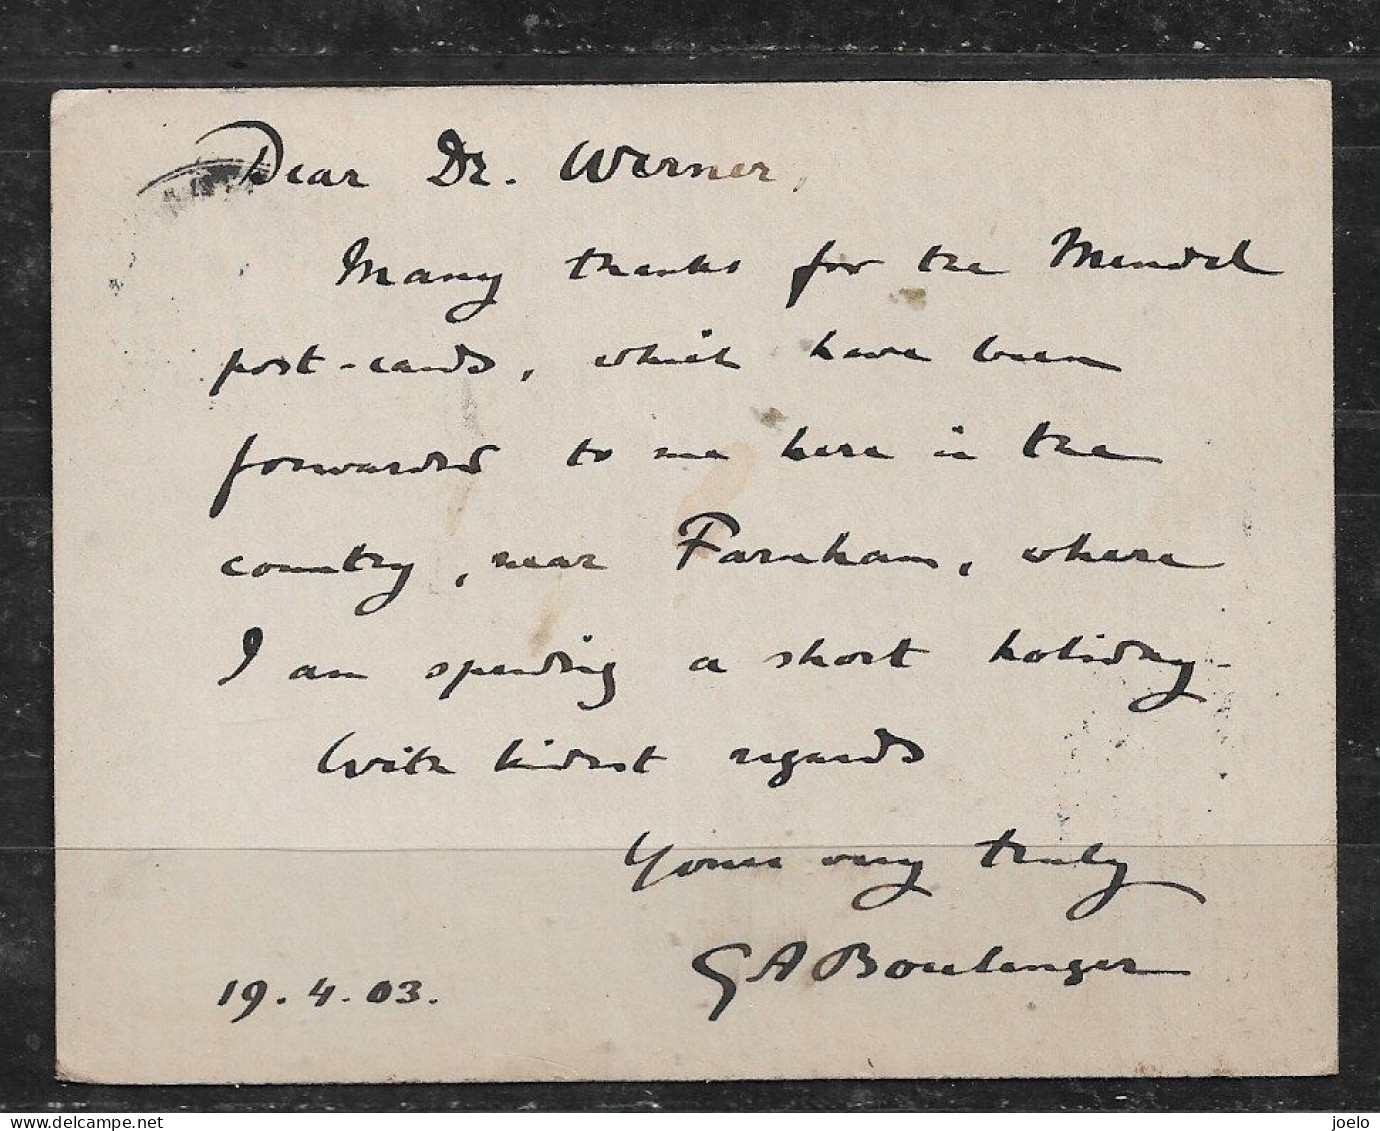 Dear Dr. Werner,
Many thanks for the Mendel
post-cards, which have been
forwarded to me here in the
country, near Farnham, where
I am spending a short holiday.
With kindest regards
Yours very truly
G A Boulenger
19.4.03.
www.delcampe.net
joelo